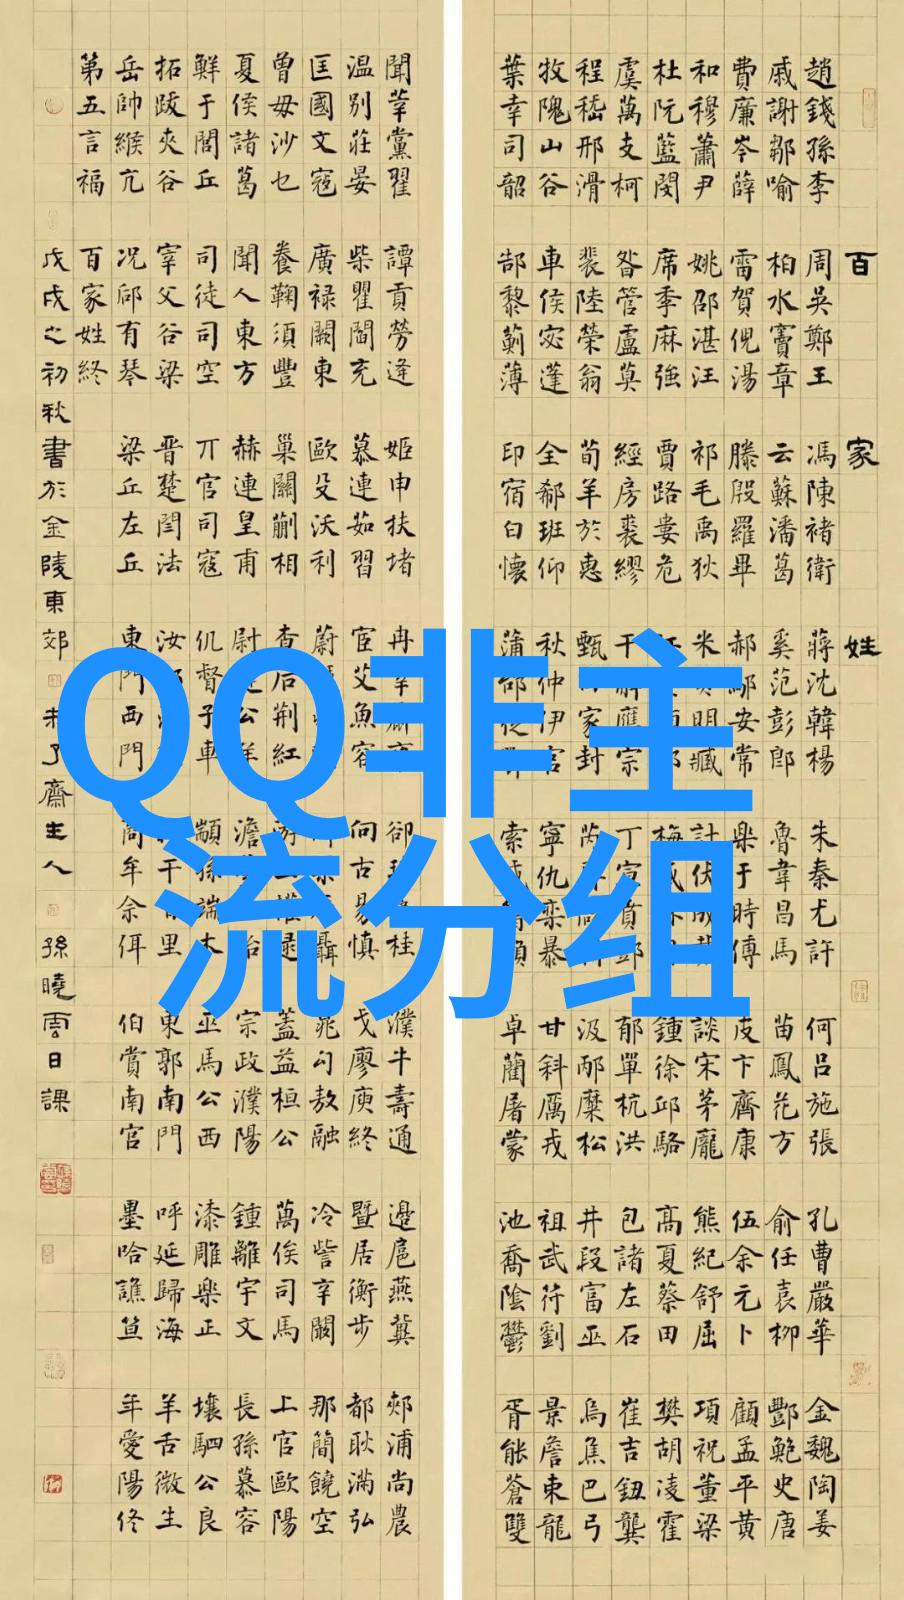 QQ非主
流分组
百家姓
趙錢孫李 周吳鄭王 馮陳褚衛 蔣沈韓楊 朱秦尤許 何吕施張 孔曹嚴華 金魏陶姜
戚謝鄒喻 柏水竇章 云蘇潘葛 奚范彭郎 魯韋昌馬 苗鳳花方 俞任袁柳 酆鮑史唐
費廉岑薛 雷賀倪湯 滕殷羅畢 郝鄔安常 樂于時傅 皮卞齊康 伍余元卜 顧孟平黃
和穆蕭尹 姚邵湛汪 祁毛禹狄 米明臧 計伏成 談宋茅龐 熊紀舒屈 項祝董梁
杜阮藍閔 席季麻強 賈路婁危 梅 鍾徐邱駱 高夏蔡田 樊胡凌霍
虞萬支柯 昝管盧莫 經房裘繆 干應宗 丁宣賁鄧 郁單杭洪 包諸左石 崔吉鈕龔
程嵇邢滑 裴陸榮翁 荀羊於惠 甄家封 芮 汲邴糜松 井段富巫 烏焦巴弓
牧隗山谷 車侯宓蓬 全郗班仰 秋仲伊宮 寧仇欒暴 甘斜厲戎 祖武符劉 景詹束龍
葉幸司韶 郜黎薊薄 印宿白懷 蒲 索 卓藺屠蒙 池喬陰鬱 胥能蒼雙
聞莘黨翟 譚貢勞逄 姬申扶堵 冉宰 郤桂 濮牛壽通 邊扈燕冀 郟浦尚農
温別莊晏 柴瞿閻充 慕連茹習 宦艾魚容 向古易慎 戈廖庾終 暨居衡步 都耿滿弘
匡國文寇 廣禄闕東 歐殳沃利 蔚 聶 晁勾敖融 冷訾辛闞 那簡饒空
曾毋沙乜 養鞠須豐 巢關蒯相 查后荊紅 逯 蓋益桓公 萬俟司馬 上官歐陽
夏侯諸葛 聞人東方 赫連皇甫 尉公羊 澹冶 宗政濮陽 鍾離宇文 長孫慕容
鮮于閭丘 司徒司空 丌官司寇 仉督子車 顓孫端木 巫馬公西 漆雕樂正 壤駟公良
拓跋夾谷 宰父谷梁 晋楚閆法 汝 干里 東郭南門 呼延歸海 羊舌微生
岳帥緱亢 况郈有琴 梁丘左丘 東門西門 商牟佘佴 伯賞南宮 墨哈譙笪 年愛陽佟
第五言福 百家姓終
戊戌之初秋書於金陵東郊未了齋主人孫曉雲日課